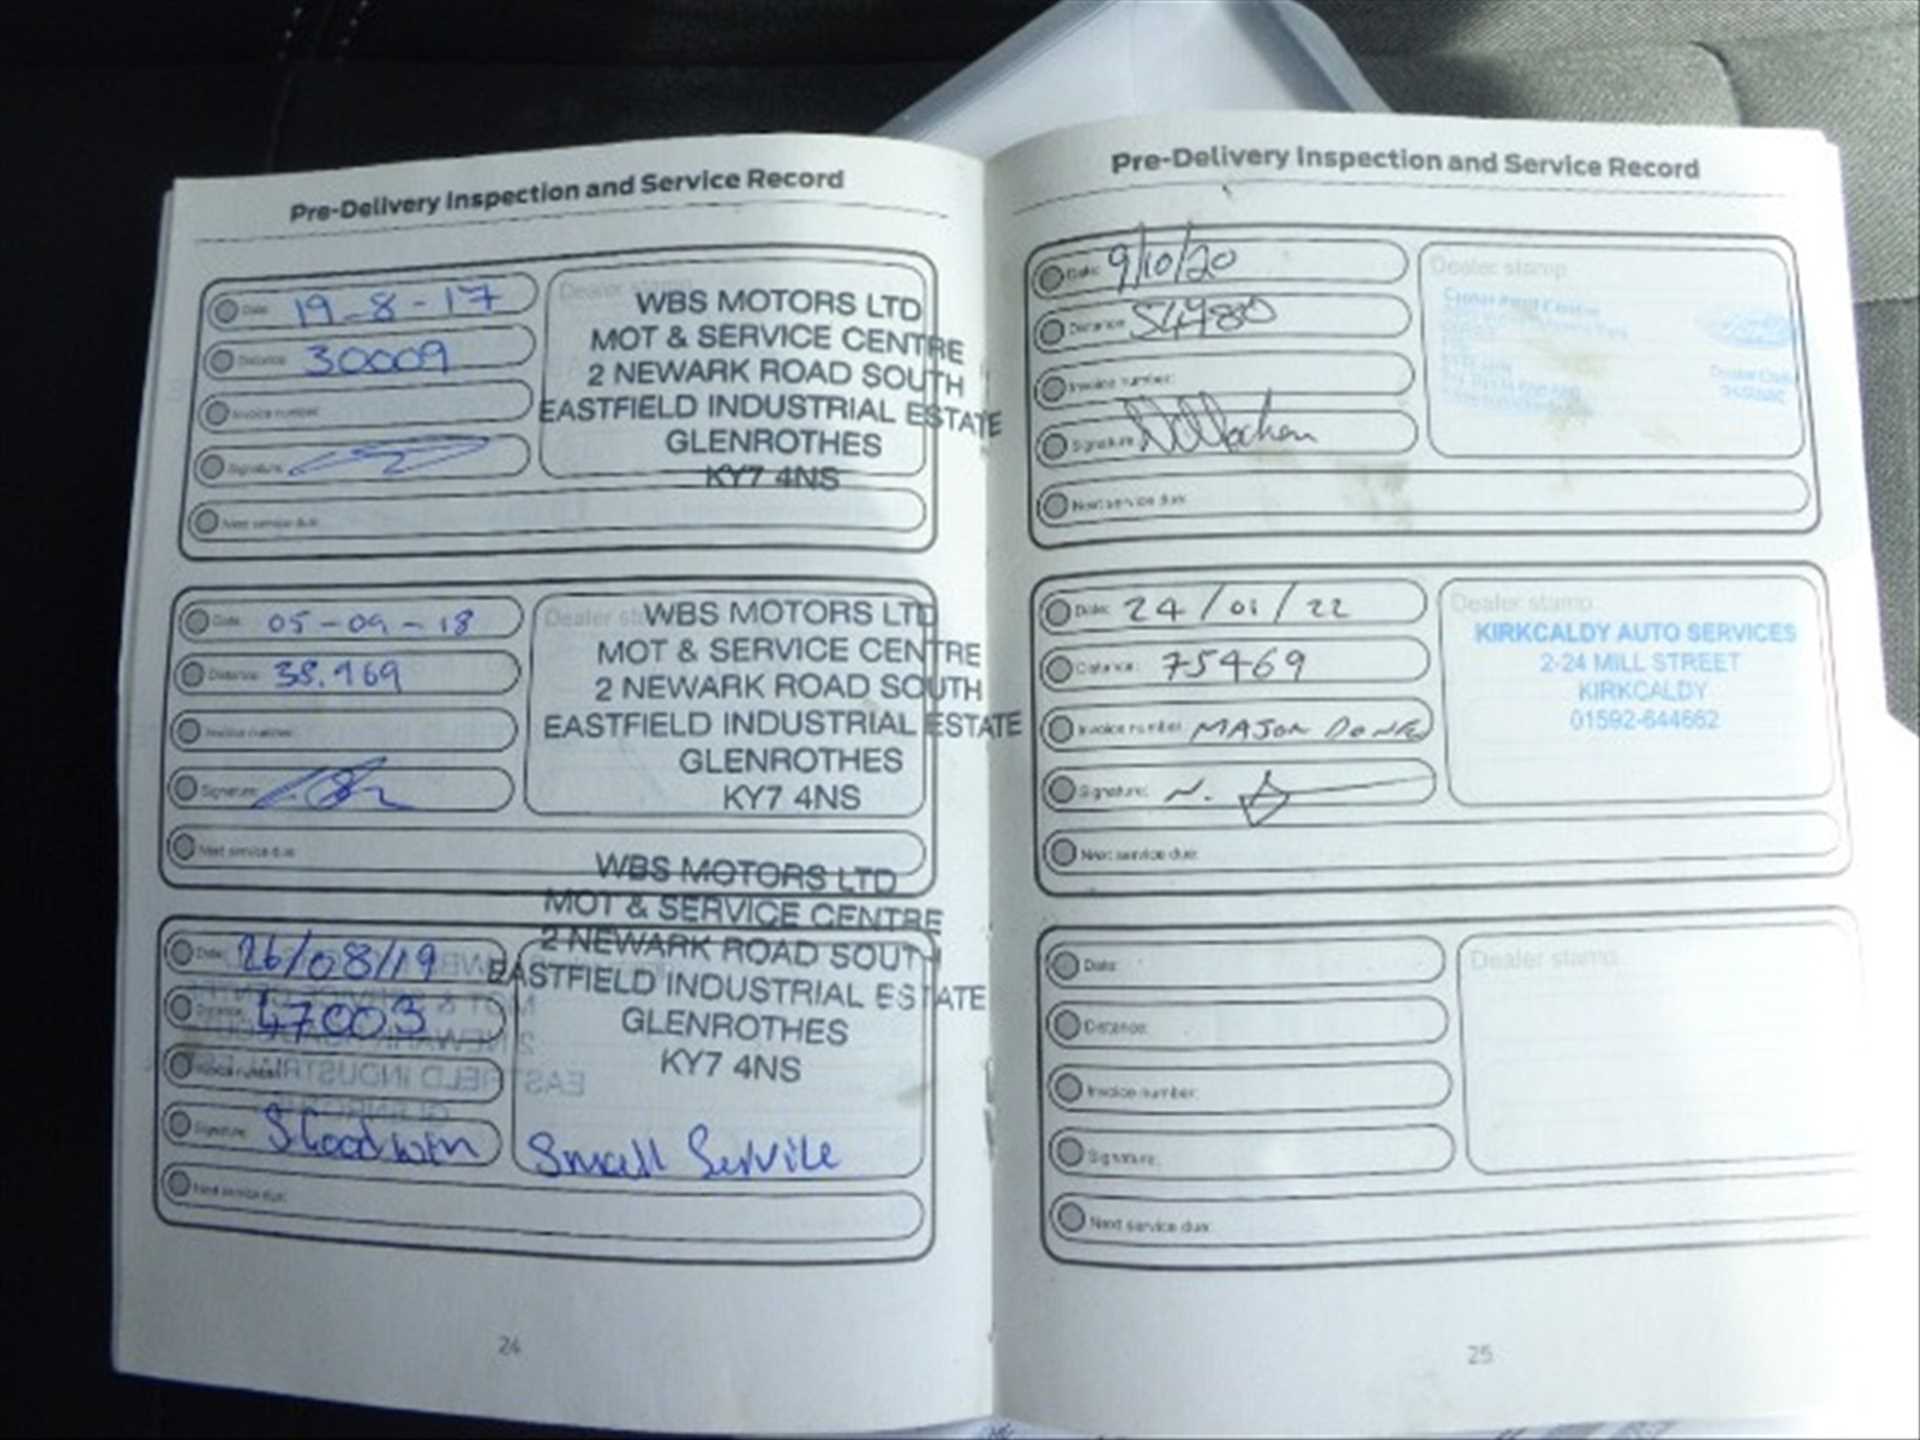 Pre-Delivery Inspection and Service Record
Date: 19-8-17
Distance: 30009
Invoice number:
Signature:
Next service due:
Dealer stamp
WBS MOTORS LTD
MOT & SERVICE CENTRE
2 NEWARK ROAD SOUTH
EASTFIELD INDUSTRIAL ESTATE
GLENROTHES
KY7 4NS
Date: 05-09-18
Distance: 38.969
Invoice number:
Signature:
Next service due:
Dealer stamp
WBS MOTORS LTD
MOT & SERVICE CENTRE
2 NEWARK ROAD SOUTH
EASTFIELD INDUSTRIAL ESTATE
GLENROTHES
KY7 4NS
Date: 26/08/19
Distance: 47003
Invoice number:
Signature: S Goodwin
Next service due:
WBS MOTORS LTD
MOT & SERVICE CENTRE
2 NEWARK ROAD SOUTH
EASTFIELD INDUSTRIAL ESTATE
GLENROTHES
KY7 4NS
Small Service
24
Pre-Delivery Inspection and Service Record
Date: 9/10/20
Distance: 54980
Invoice number:
Signature:
Next service due:
Dealer stamp
Date: 24/01/22
Distance: 75469
Invoice number: MAJOR DONE
Signature:
Next service due:
Dealer stamp
KIRKCALDY AUTO SERVICES
2-24 MILL STREET
KIRKCALDY
01592-644662
Date:
Distance:
Invoice number:
Signature:
Next service due:
Dealer stamp
25